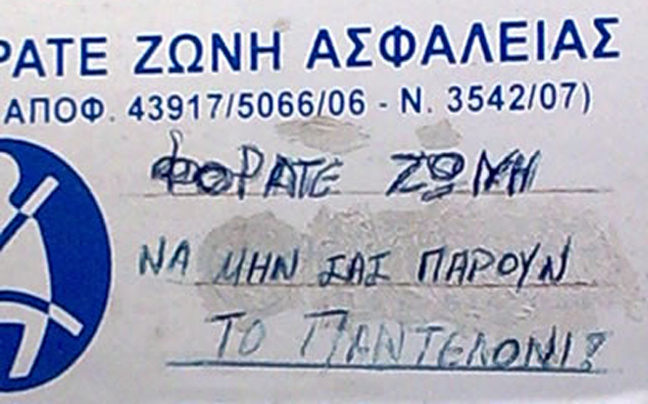 ΡΑΤΕ ΖΩΝΗ ΑΣΦΑΛΕΙΑΣ
ΑΠΟΦ. 43917/5066/06 - Ν. 3542/07)
ΦΟΡΑΤΕ ΖΩΝΗ
ΝΑ ΜΗΝ ΣΑΣ ΠΑΡΟΥΝ
ΤΟ ΠΑΝΤΕΛΟΝΙ!